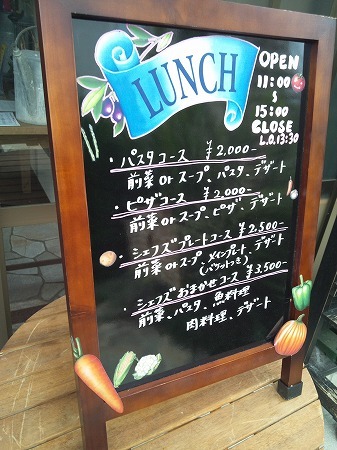 LUNCH
OPEN
11:00
〜
15:00
CLOSE
L.O.13:30
・パスタコース ¥2,000-
前菜orスープ、パスタ、デザート
・ピザコース ¥2,000-
前菜orスープ、ピザ、デザート
・シェフズプレートコース ¥2,500-
前菜orスープ、メインプレート、デザート
(バケットつき)
・シェフズおまかせコース ¥3,500-
前菜、パスタ、魚料理
肉料理、デザート